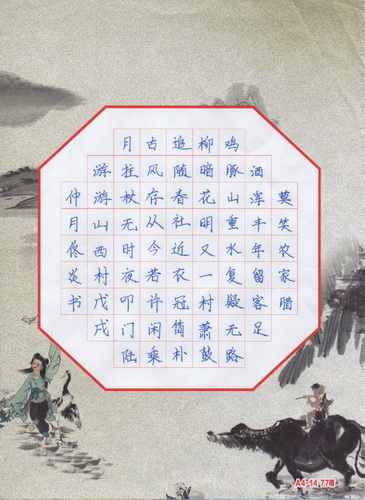 莫笑农家腊
酒浑丰年留客足
鸡豚山重水复疑无路
柳暗花明又一村萧鼓
追随春社近衣冠简朴
古风存从今若许闲乘
月拄杖无时夜叩门陆
游游山西村戊戌
仲月佟炎书
A4-14 77格